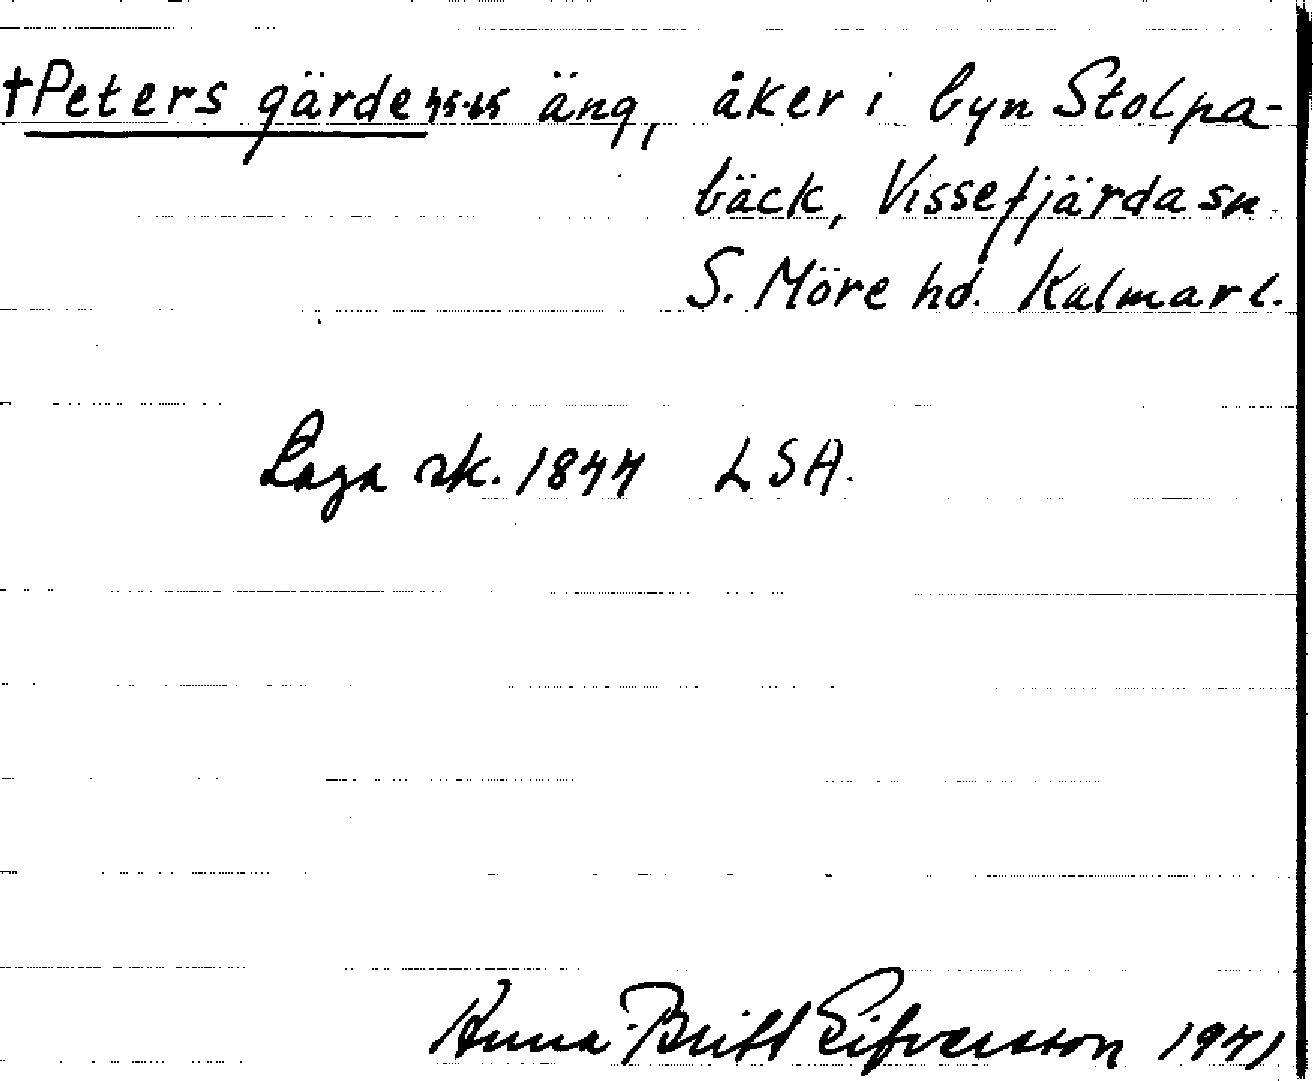 †Peters gärde 45-65 äng, åker i byn Stolpa-
bäck, Vissefjärda sn
S. Möre hd. Kalmar l.
Laga sk. 1844 LSA.
Anna-Britt Sifversson 1971